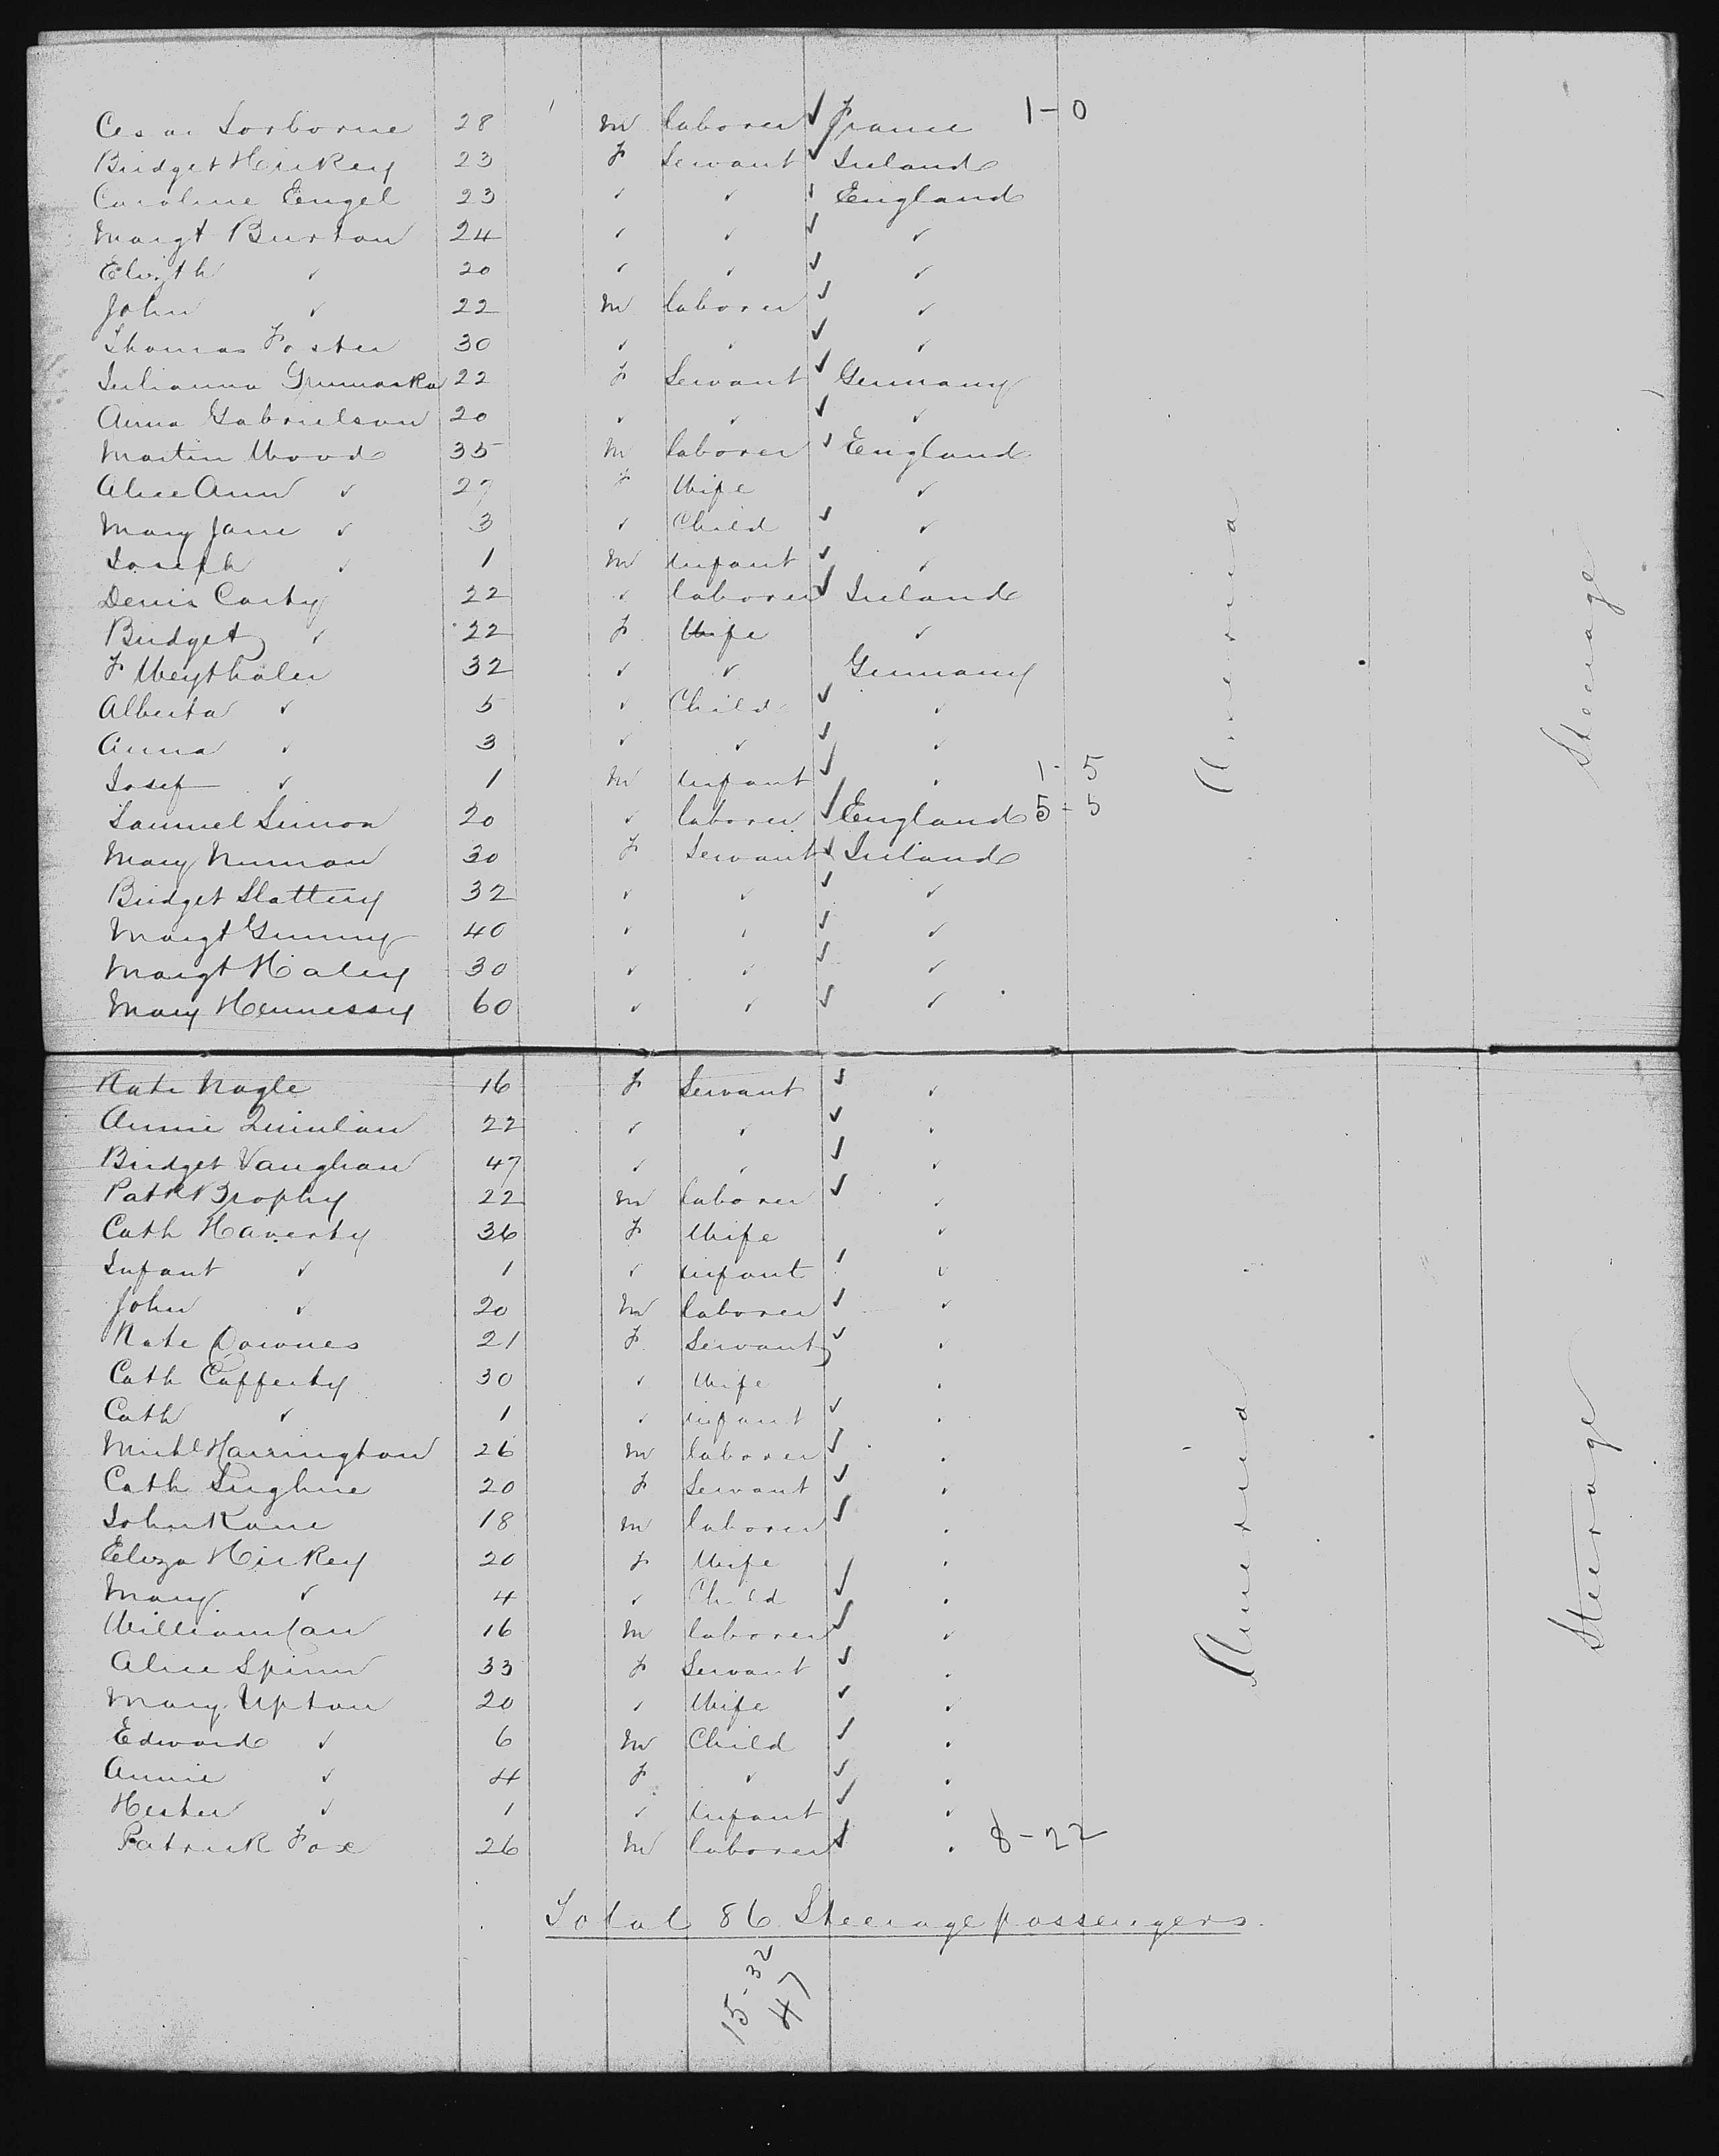 Cesar Sorborne 28 m laborer ✓ France 1-0
Bridget Hickey 23 f Servant ✓ Ireland
Caroline Engel 23 ✓ ✓ ✓ England
Margt Burton 24 ✓ ✓ ✓ ✓
Elizth ✓ 20 ✓ ✓ ✓ ✓
John ✓ 22 m laborer ✓ ✓
Thomas Foster 30 ✓ ✓ ✓ ✓
Julianna 22 f Servant ✓ Germany
Anna Gabrielson 20 ✓ ✓ ✓ ✓
Martin Wood 35 m laborer ✓ England
Alice Ann ✓ 27 f Wife ✓
Mary Jane ✓ 3 ✓ Child ✓ ✓
Joseph ✓ 1 m infant ✓ ✓
Denis Carty 22 ✓ laborer ✓ Ireland
Bridget ✓ 22 f Wife ✓
F Weythaler 32 ✓ ✓ Germany
Alberta ✓ 5 ✓ Child ✓ ✓
Anna ✓ 3 ✓ ✓ ✓ ✓
Josef ✓ 1 m infant ✓ ✓ 1-5
Samuel Simon 20 ✓ laborer ✓ England 5-5
Mary Nunan 30 f Servant ✓ Ireland
Bridget Slattery 32 ✓ ✓ ✓ ✓
Margt 40 ✓ ✓ ✓ ✓
Margt Haley 30 ✓ ✓ ✓ ✓
Mary Hennessy 60 ✓ ✓ ✓ ✓
America
Steerage
Kate Nagle 16 f Servant ✓ ✓
Annie Quinlan 22 ✓ ✓ ✓ ✓
Bridget Vaughan 47 ✓ ✓ ✓ ✓
Patk Brophy 22 m laborer ✓ ✓
Cath Haverty 36 f Wife ✓
Infant ✓ 1 ✓ infant ✓ ✓
John ✓ 20 m laborer ✓ ✓
Kate Downes 21 f Servant ✓ ✓
Cath Cafferty 30 ✓ Wife ✓
Cath ✓ 1 ✓ infant ✓ ✓
Michl Harrington 26 m laborer ✓ ✓
Cath Sughrue 20 f Servant ✓ ✓
John Kane 18 m laborer ✓ ✓
Eliza Hickey 20 f Wife ✓
Mary ✓ 4 ✓ Child ✓ ✓
William Carr 16 m laborer ✓ ✓
Alice Spinn 33 f Servant ✓ ✓
Mary Upton 20 ✓ Wife ✓ ✓
Edward ✓ 6 m Child ✓ ✓
Annie ✓ 4 f ✓ ✓ ✓
Hester ✓ 1 ✓ infant ✓ ✓
Patrick Fox 26 m laborer ✓ ✓ 8-22
America
Steerage
Total 86 Steerage passengers.
15-32
47